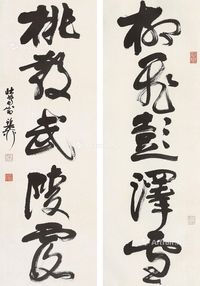 柳飛彭澤雪
桃散武陵霞